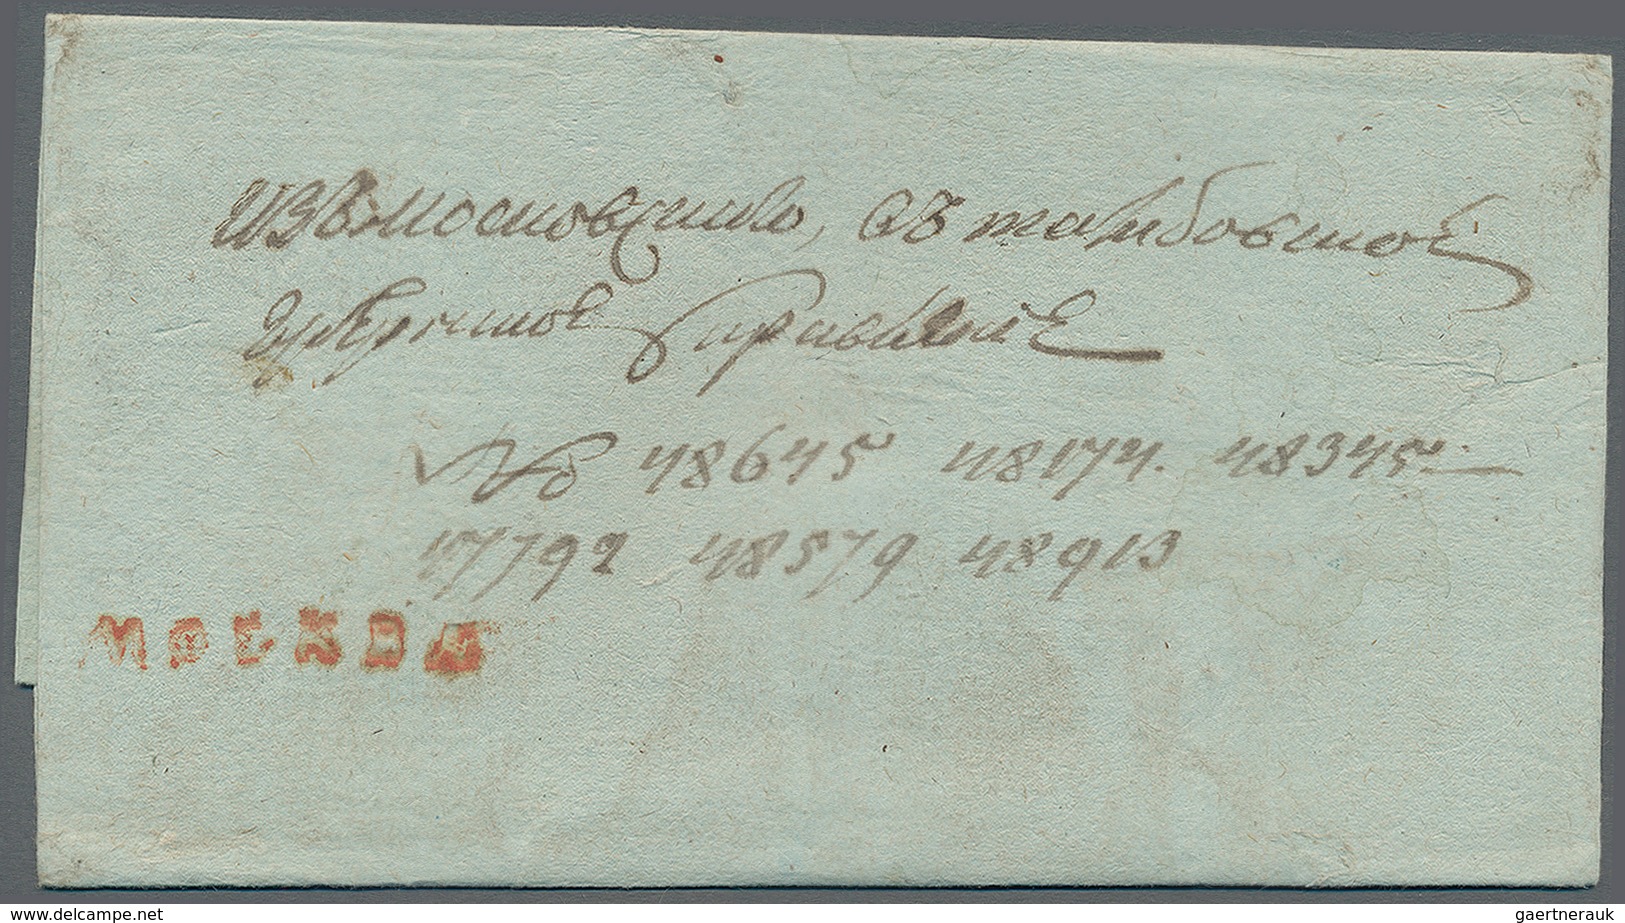 изъ московскаго, въ тамбовское
губернское правление
№ 48645 48174. 48345
47792 48579 48913
МОСКВА
www.delcampe.net
gaertnerauk